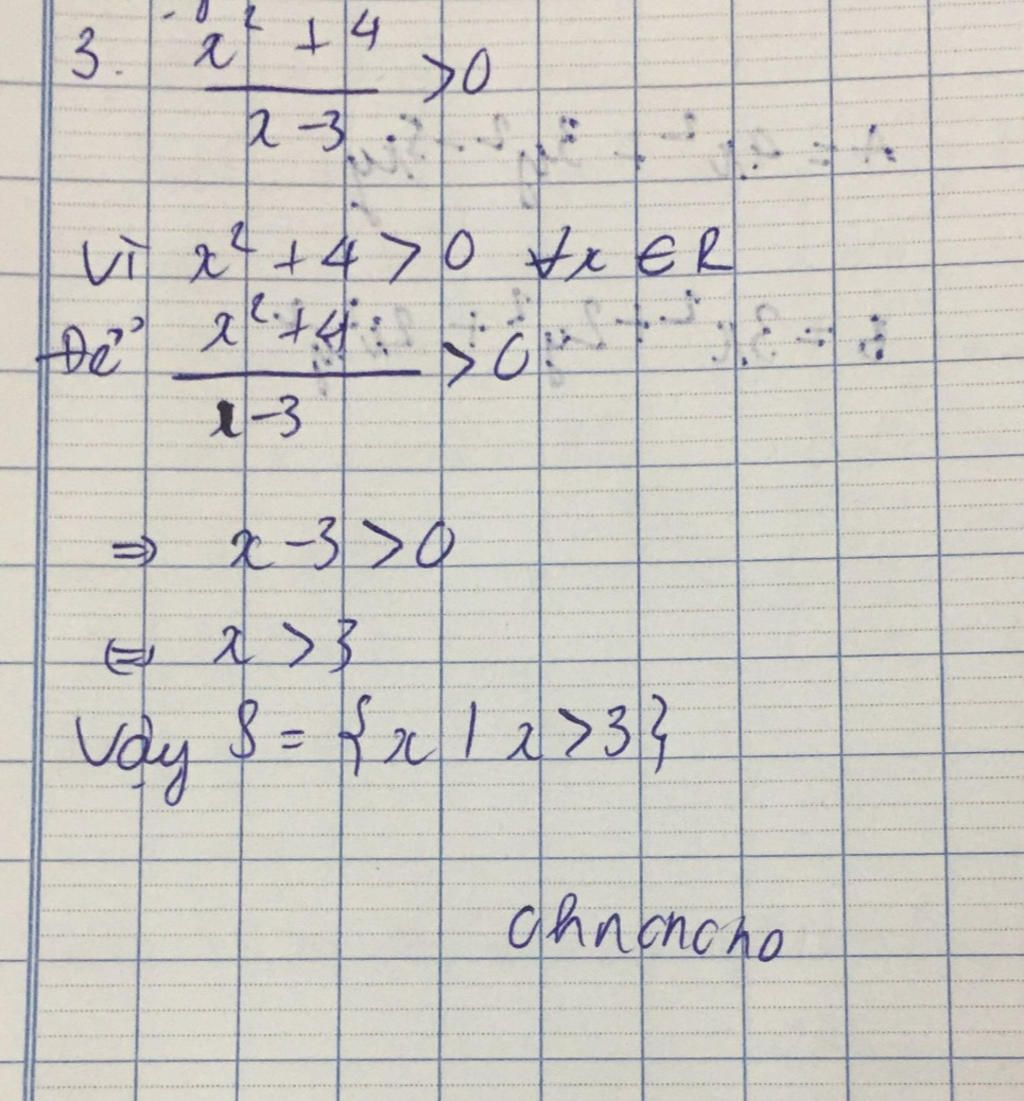 3. x² + 4 / x - 3 > 0
Vì x² + 4 > 0 ∀x ∈ R
Để x² + 4 / x - 3 > 0
⇒ x - 3 > 0
⇔ x > 3
Vậy S = {x | x > 3}